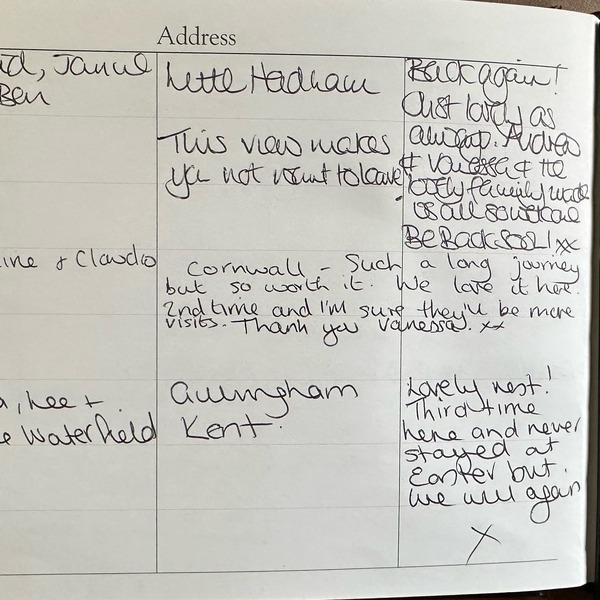 Address
Janice
Ben
Little Hadham
Back again!
Just lovely as
always. Andrew
& Vanessa & the
lovely family made
us all so welcome
Be Back SOON! xx
This view makes
you not want to leave
ine & Claudio
Cornwall - Such a long journey
but so worth it. We love it here.
2nd time and I'm sure they'll be more
visits. Thank you Vanessa. xx
a, Lee +
e Waterfield
Gillingham
Kent.
Lovely rest!
Third time
here and never
stayed at
Easter but.
we will again
X